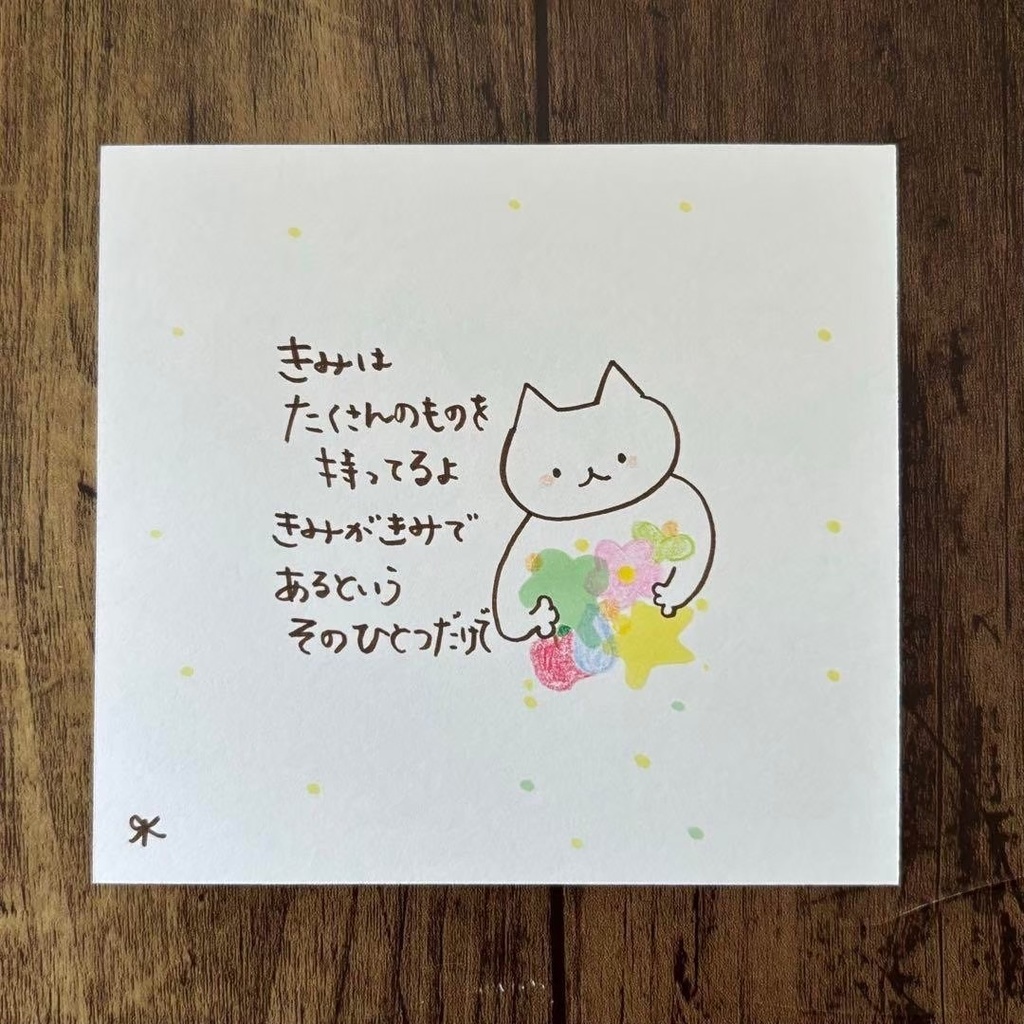 きみは
たくさんのものを
持ってるよ
きみがきみで
あるという
そのひとつだけで